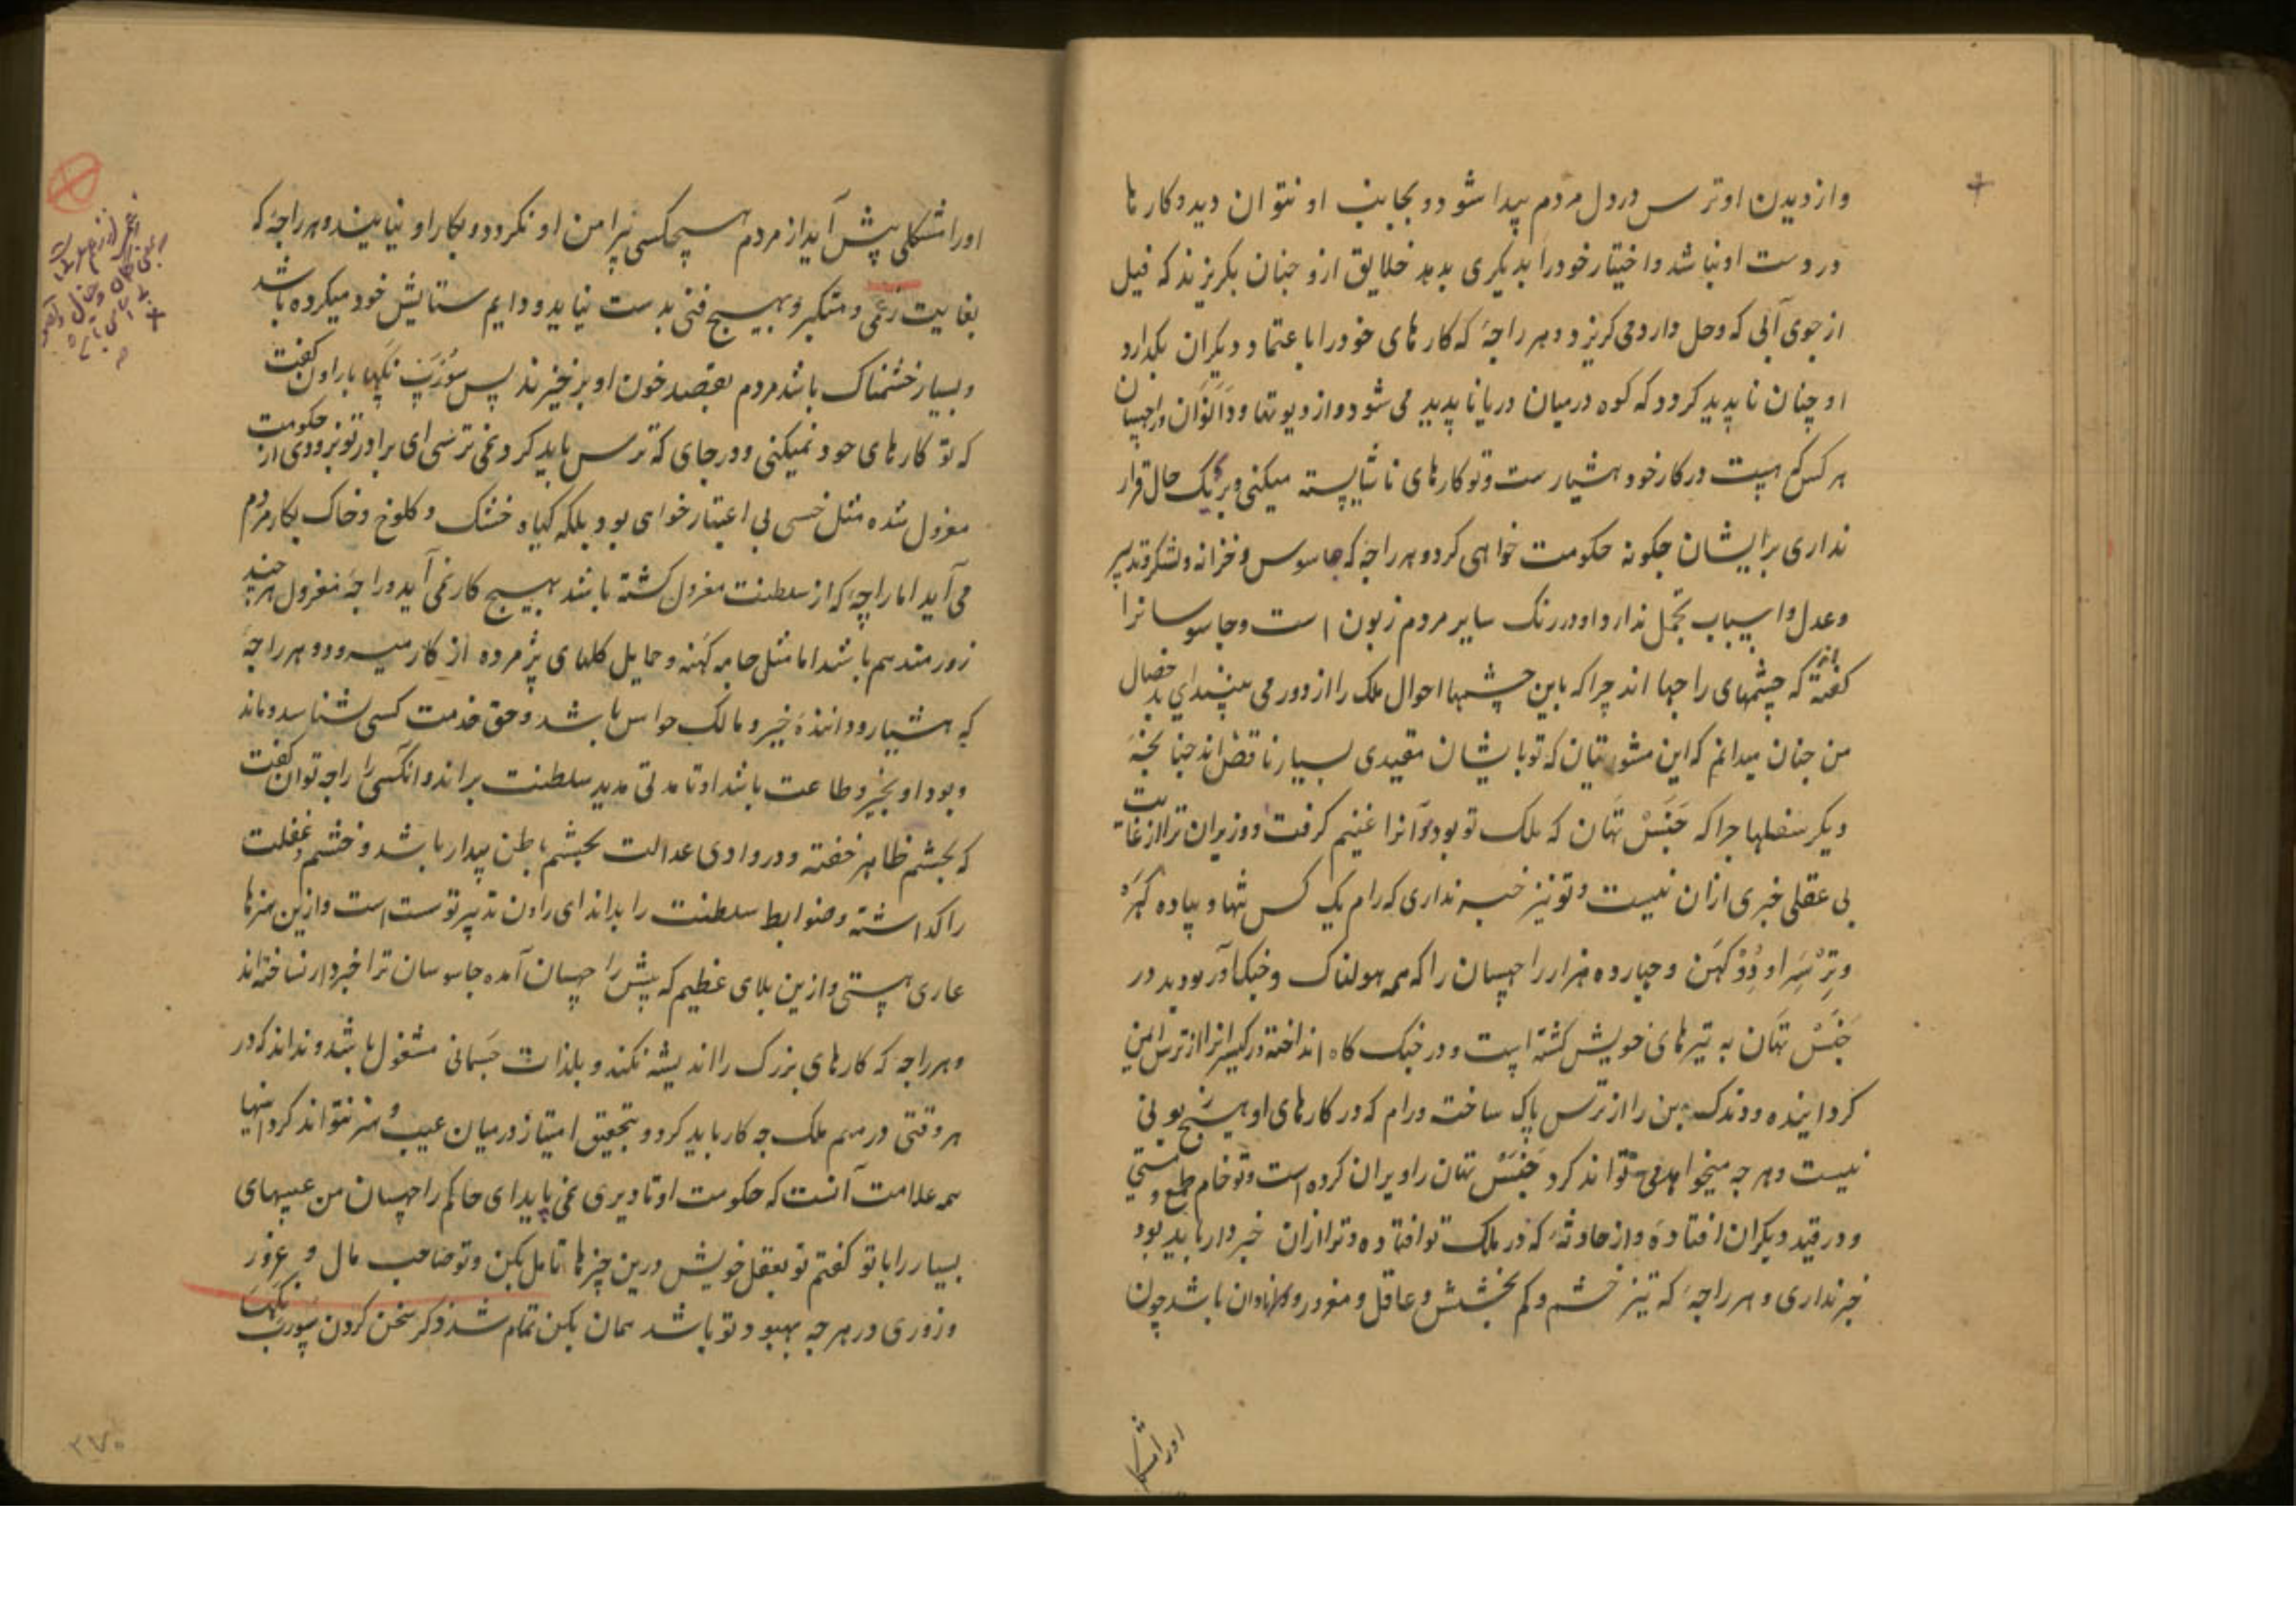 وازدیدن اوترس در دل مردم پیدا شود و بجانب او نتوان دید و کارها
در دست او نباشد و اختیار خود را بدیکری بدهد خلایق ازو چنان بکریزند که فیل
از جوی آبی که وحل دارد می کریزد و هر راجهٔ که کارهای خود را باعتماد دیکران بکذارد
او چنان ناپدید کردد که کوه درمیان دریا ناپدید می شود و از دیوتها و دانوان و راچهسان
هر کس که هست در کار خود هشیارست و تو کارهای ناشایسته میکنی و بر یک حال قرار
نداری برایشان چکونه حکومت خواهی کرد و هر راجه که جاسوس و خزانه و لشکر و تدبیر
و عدل و اسباب تجمل ندارد او در رنک سایر مردم زبون است و جاسوسانرا
کفته اند که چشمهای راجها اند چرا که باین چشمها احوال ملک را از دور می بینند ای بد خصال
من چنان میدانم که این مشورتیان که تو با یشان مقیدی بسیار ناقص اند چنانچه
دیکر سفلها چرا که جنس تهان که ملک تو بود و آنرا غنیم کرفت و وزیران ترا از غایت
بی عقلی خبری ازان نیست و تو نیز خبر نداری که رام یک کس تنها و پیاده کهره
و ترسرا و دوکهن و چهارده هزار راچهسان را که همه هولناک و جنک آور بودند در
جنس تهان به تیرهای خویش کشته است و در جنک کاه انداخته و رکهیسرانرا از ترس ایمن
کردانیده و دندک بن را از ترس پاک ساخته و رام که در کارهای او هیچ بونی
نیست و هر چه میخواهد می تواند کرد جنس تهان را ویران کرده است و تو خام طمع و مستی
و در قید دیکران افتادهٔ و از حادثهٔ که در ملک تو افتاده و ترا ازان خبردار باید بود
خبر نداری و هر راجهٔ که تیز خشم و کم بخشش و غافل و مغرور و نادان باشد چون
اورا مشکلی
اورا مشکلی پیش آید از مردم هیچکسی پیرامن او نکردد و بکار او نیایند و هر راجهٔ که
بغایت زعمی و متکبر و بهیچ فنی بدست نیاید و دایم ستایش خود میکرده باشد
و بسیار خشمناک باشد مردم بقصد خون او برخیزند پس سورپ نکها با راون کفت
که تو کارهای خود نمیکنی و در جای که ترس باید کرد نمی ترسی ای برادر تو بزودی از حکومت
معزول شده مثل خسی بی اعتبار خواهی بود بلکه کیاه خشک و کلوخ و خاک بکار مردم
می آید اما راجهٔ که از سلطنت معزول کشته باشد بهیچ کار نمی آید و راجهٔ معزول هر چند
زورمند هم باشد اما مثل جامهٔ کهنه و حمایل کلهای پژمرده از کار میرود و هر راجهٔ
که هشیار و دانندهٔ خیر و مالک حواس باشد و حق خدمت کسی بشناسد و ماند
و بود او بخیر و طاعت باشد او تا مدتی مدید سلطنت براند و انکسی را راجه توان کفت
که بچشم ظاهر خفته و در وادی عدالت بچشم باطن بیدار باشد و خشم و غفلت
را کذاشته و ضوابط سلطنت را بداند ای راون تدبیر تو سست است و ازین هنرها
عاری هستی و ازین بلای عظیم که پیش راچهسان آمده جاسوسان ترا خبردار نساخته اند
و هر راجه که کارهای بزرک را اندیشه نکند و بلذات جسمانی مشغول باشد و نداند که در
هر وقتی در مهم ملک چه کار باید کرد و بتحقیق امتیاز درمیان عیب و هنر نتواند کرد اینها
همه علامت آنست که حکومت او تا دیری نمی پاید ای حاکم راچهسان من عیبهای
بسیار را با تو کفتم تو بعقل خویش درین چیزها تامل بکن و تو صاحب مال و غرور
و زوری در هر چه بهبود تو باشد همان بکن تمام شد ذکر سخن کردن سورپ نکها
۳۷۰